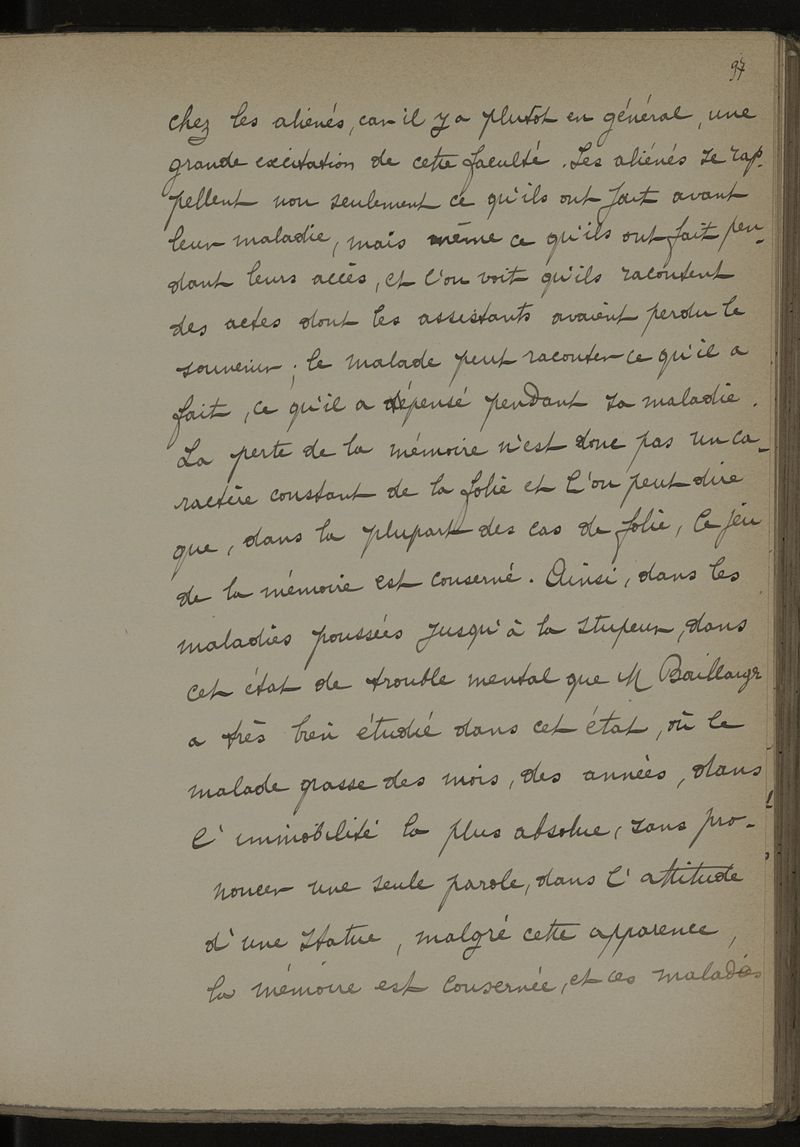 97
chez les aliénés, car il y a plutôt en général, une
grande excitation de cette faculté. Les aliénés se rap-
pellent non seulement ce qu'ils ont fait avant
leur maladie, mais même ce qu'ils ont fait pen-
dant leurs accès, et l'on voit qu'ils racontent
des actes dont les assistants avaient perdu le
souvenir ; le malade peut raconter ce qu'il a
fait, ce qu'il a dépensé pendant sa maladie.
La perte de la mémoire n'est donc pas un ca-
ractère constant de la folie et l'on peut dire
que, dans la plupart des cas de folie, le jeu
de la mémoire est conservé. Ainsi, dans les
maladies poussées jusqu'à la stupeur, dans
cet état de trouble mental que M Baillarger
a très bien étudié dans cet état, où le
malade passe des mois, des années, dans
l'immobilité la plus absolue, sans pro-
noncer une seule parole, dans l'attitude
d'une statue, malgré cette apparence,
la mémoire est conservée, et ces malades